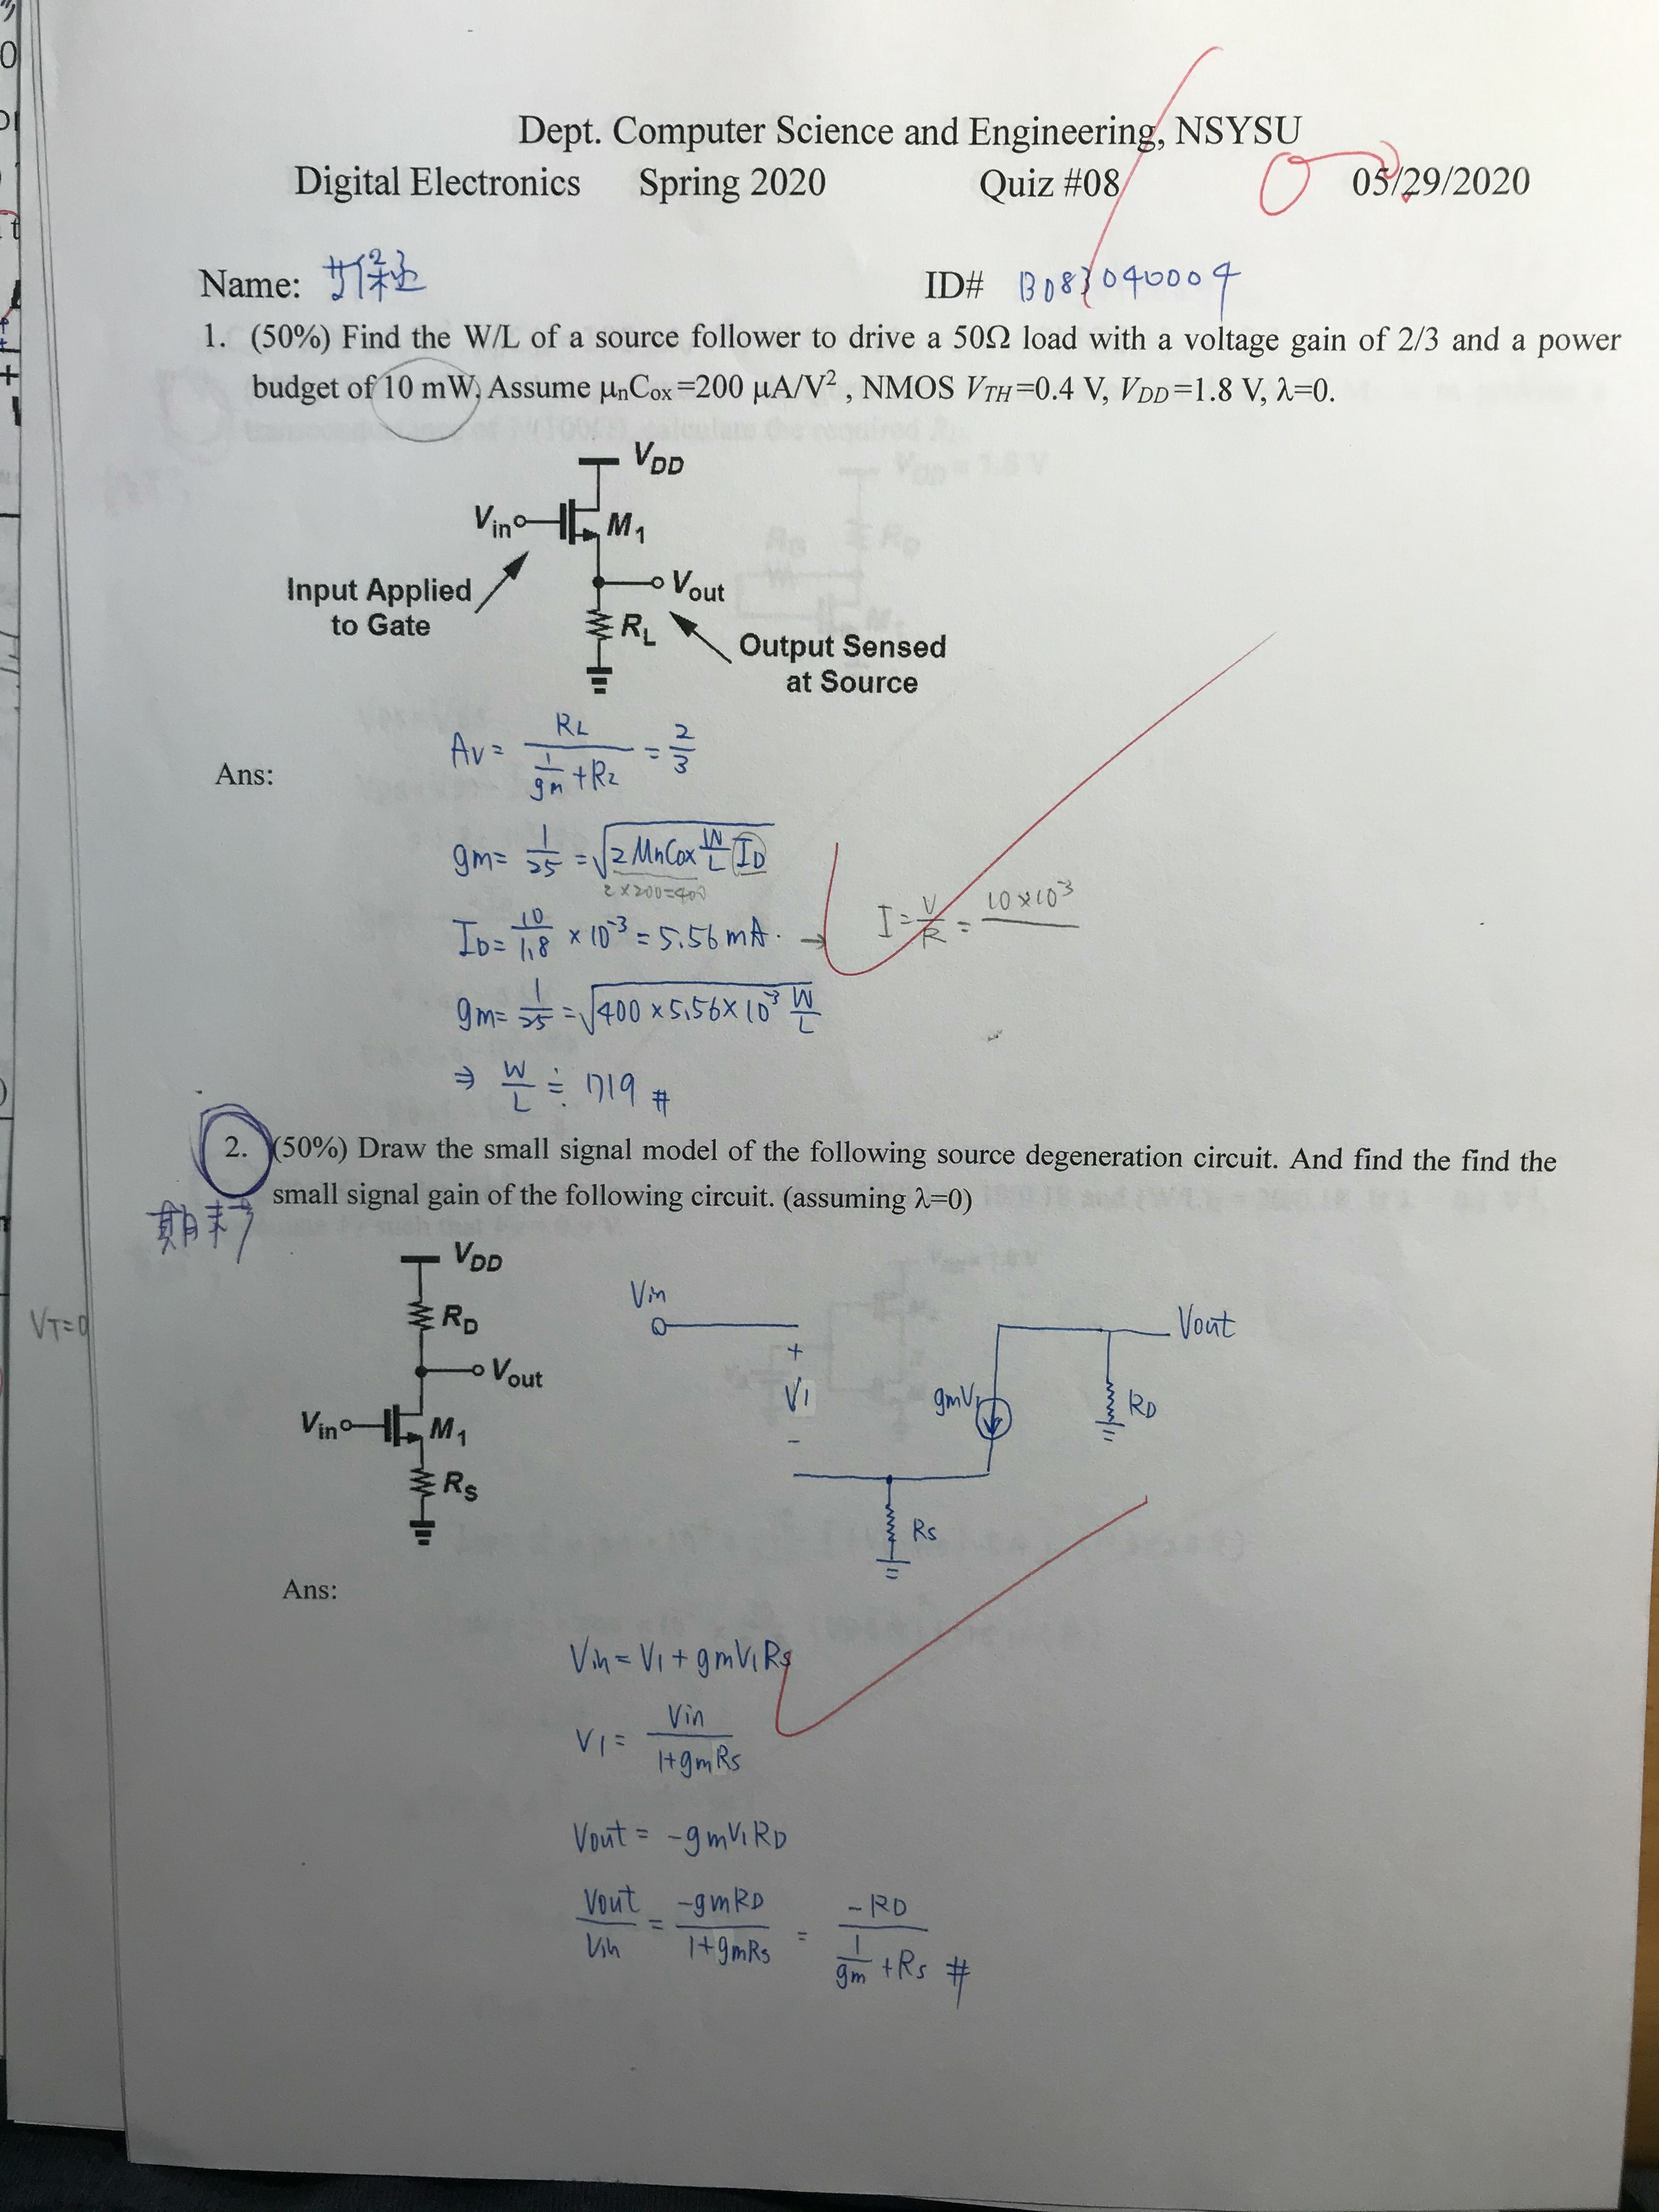 Dept. Computer Science and Engineering, NSYSU
Digital Electronics Spring 2020 Quiz #08 05/29/2020
Name: ID# B083040004
1. (50%) Find the W/L of a source follower to drive a 50Ω load with a voltage gain of 2/3 and a power
budget of 10 mW. Assume μnCox=200 μA/V², NMOS VTH=0.4 V, VDD=1.8 V, λ=0.
VDD
Vin M1
Input Applied
to Gate
Vout
RL
Output Sensed
at Source
Ans:
Av = RL / (1/gm + RL) = 2/3
gm = 1/25 = √(2 μnCox W/L ID)
2×200=400
ID = 10/1.8 × 10⁻³ = 5.56 mA. → I = V/R = 10×10⁻³
gm = 1/25 = √(400 × 5.56 × 10⁻³ W/L)
⇒ W/L ≒ 1719 #
2. (50%) Draw the small signal model of the following source degeneration circuit. And find the find the
small signal gain of the following circuit. (assuming λ=0)
期末
VDD
RD
Vout
Vin M1
RS
VT=0
Vin
+
V1
-
gmV1
Vout
RD
Rs
Ans:
Vin = V1 + gmV1Rs
V1 = Vin / (1+gmRs)
Vout = -gmV1RD
Vout/Vin = -gmRD / (1+gmRs) = -RD / (1/gm + Rs) #